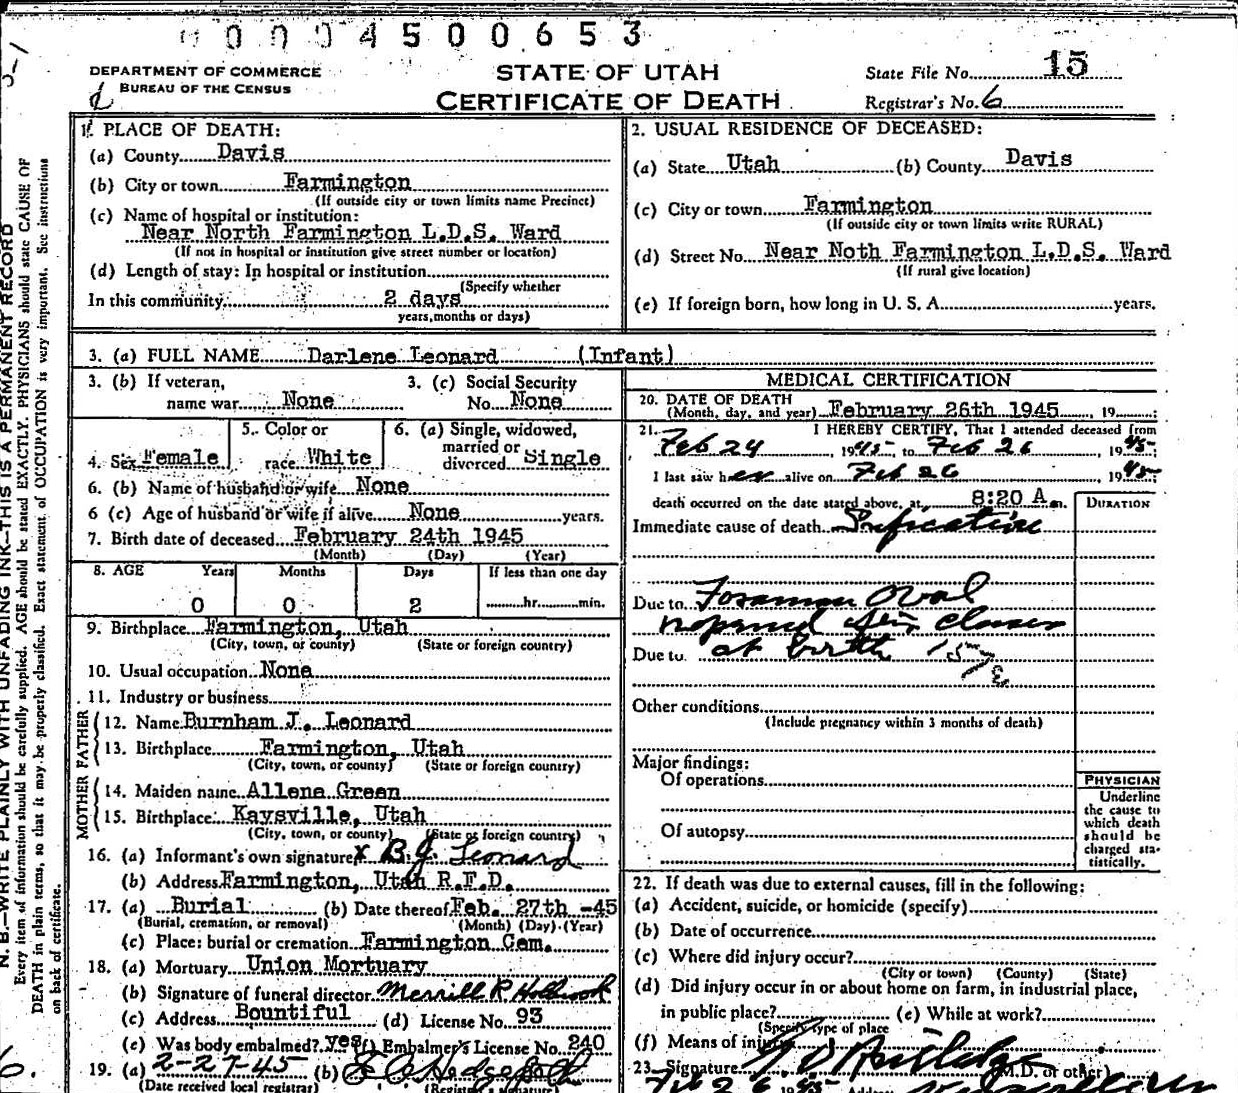 0004500653
DEPARTMENT OF COMMERCE
BUREAU OF THE CENSUS
STATE OF UTAH
CERTIFICATE OF DEATH
State File No. 15
Registrar's No. 6
1. PLACE OF DEATH:
(a) County Davis
(b) City or town Farmington
(If outside city or town limits name Precinct)
(c) Name of hospital or institution:
Near North Farmington L.D.S. Ward
(If not in hospital or institution give street number or location)
(d) Length of stay: In hospital or institution
(Specify whether
In this community 2 days
years, months or days)
2. USUAL RESIDENCE OF DECEASED:
(a) State Utah (b) County Davis
(c) City or town Farmington
(If outside city or town limits write RURAL)
(d) Street No. Near Noth Farmington L.D.S. Ward
(If rural give location)
(e) If foreign born, how long in U. S. A. years.
3. (a) FULL NAME Darlene Leonard (Infant)
3. (b) If veteran,
name war None
3. (c) Social Security
No. None
4. Sex Female
5. Color or
race White
6. (a) Single, widowed,
married or
divorced Single
6. (b) Name of husband or wife None
6 (c) Age of husband or wife if alive None years.
7. Birth date of deceased February 24th 1945
(Month) (Day) (Year)
8. AGE Years Months Days If less than one day
0 0 2 hr. min.
9. Birthplace Farmington, Utah
(City, town, or county) (State or foreign country)
10. Usual occupation None
11. Industry or business
FATHER
12. Name Burnham J. Leonard
13. Birthplace Farmington, Utah
(City, town, or county) (State or foreign country)
MOTHER
14. Maiden name Allene Green
15. Birthplace Kaysville, Utah
(City, town, or county) (State or foreign country)
16. (a) Informant's own signature x B. J. Leonard
(b) Address Farmington, Utah R.F.D.
17. (a) Burial (b) Date thereof Feb. 27th -45
(Burial, cremation, or removal) (Month) (Day) (Year)
(c) Place: burial or cremation Farmington Cem.
18. (a) Mortuary Union Mortuary
(b) Signature of funeral director Merrill R Holbrook
(c) Address Bountiful (d) License No. 93
(e) Was body embalmed? yes (f) Embalmer's License No. 240
19. (a) 2-27-45 (b)
(Date received local registrar) (Registrar's signature)
MEDICAL CERTIFICATION
20. DATE OF DEATH
(Month, day, and year) February 26th 1945, 19 ;
21. I HEREBY CERTIFY, That I attended deceased from
Feb 24, 1945, to Feb 26, 1945
I last saw her alive on Feb 26, 1945
death occurred on the date stated above, at 8:20 A m.
DURATION
Immediate cause of death
Due to Foramen Oval
closer
Due to at birth
Other conditions
(Include pregnancy within 3 months of death)
Major findings:
Of operations
Of autopsy
PHYSICIAN
Underline
the cause to
which death
should be
charged sta-
tistically.
22. If death was due to external causes, fill in the following:
(a) Accident, suicide, or homicide (specify)
(b) Date of occurrence
(c) Where did injury occur?
(City or town) (County) (State)
(d) Did injury occur in or about home on farm, in industrial place,
in public place? (e) While at work?
(Specify type of place
(f) Means of injury
23. Signature (M.D. or other)
Feb 26 1945 Address
N. B.—WRITE PLAINLY WITH UNFADING INK—THIS IS A PERMANENT RECORD
Every item of information should be carefully supplied. AGE should be stated EXACTLY. PHYSICIANS should state CAUSE OF
DEATH in plain terms, so that it may be properly classified. Exact statement of OCCUPATION is very important. See instructions
on back of certificate.